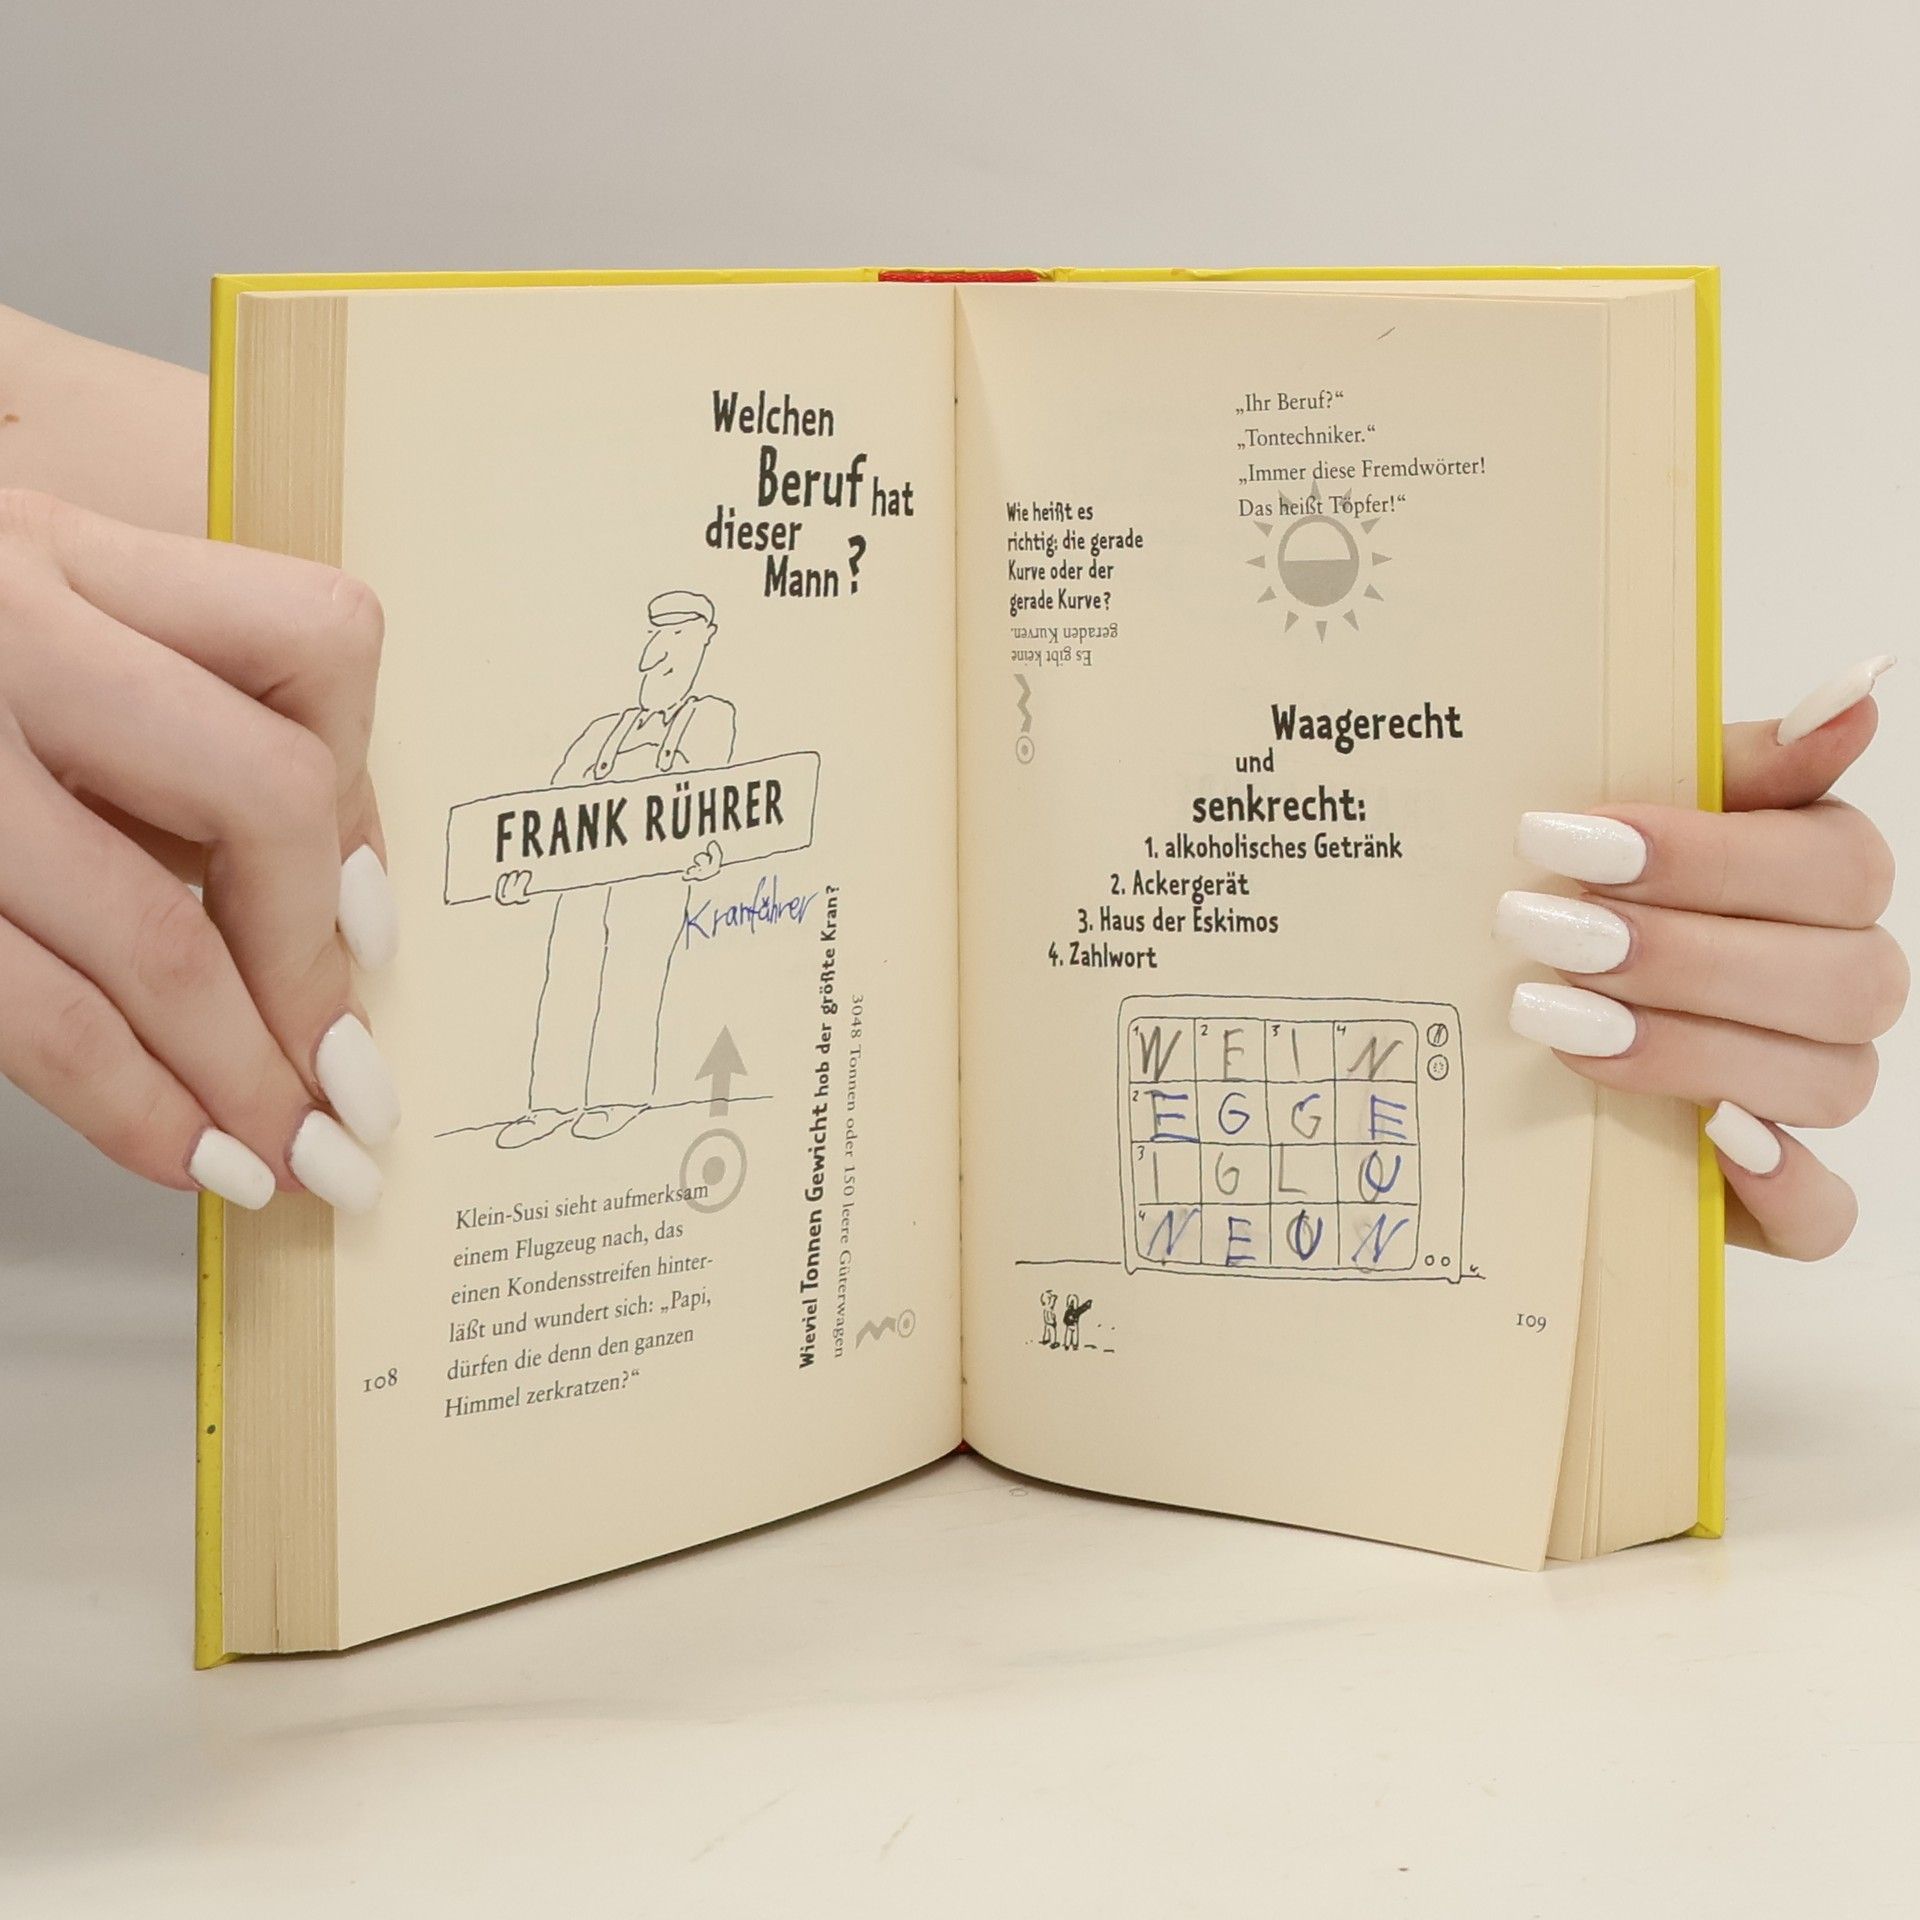 Welchen
Beruf hat
dieser
Mann?
FRANK RÜHRER
Kranfährer
Wieviel Tonnen Gewicht hob der größte Kran?
3048 Tonnen oder 150 leere Güterwagen
Klein-Susi sieht aufmerksam
einem Flugzeug nach, das
einen Kondensstreifen hinter-
läßt und wundert sich: „Papi,
dürfen die denn den ganzen
Himmel zerkratzen?“
108
„Ihr Beruf?“
„Tontechniker.“
„Immer diese Fremdwörter!
Das heißt Töpfer!“
Wie heißt es
richtig: die gerade
Kurve oder der
gerade Kurve?
Es gibt keine
geraden Kurven.
Waagerecht
und
senkrecht:
1. alkoholisches Getränk
2. Ackergerät
3. Haus der Eskimos
4. Zahlwort
1 W 2 E 3 I 4 N
2 E G G E
3 I G L U
4 N E U N
109